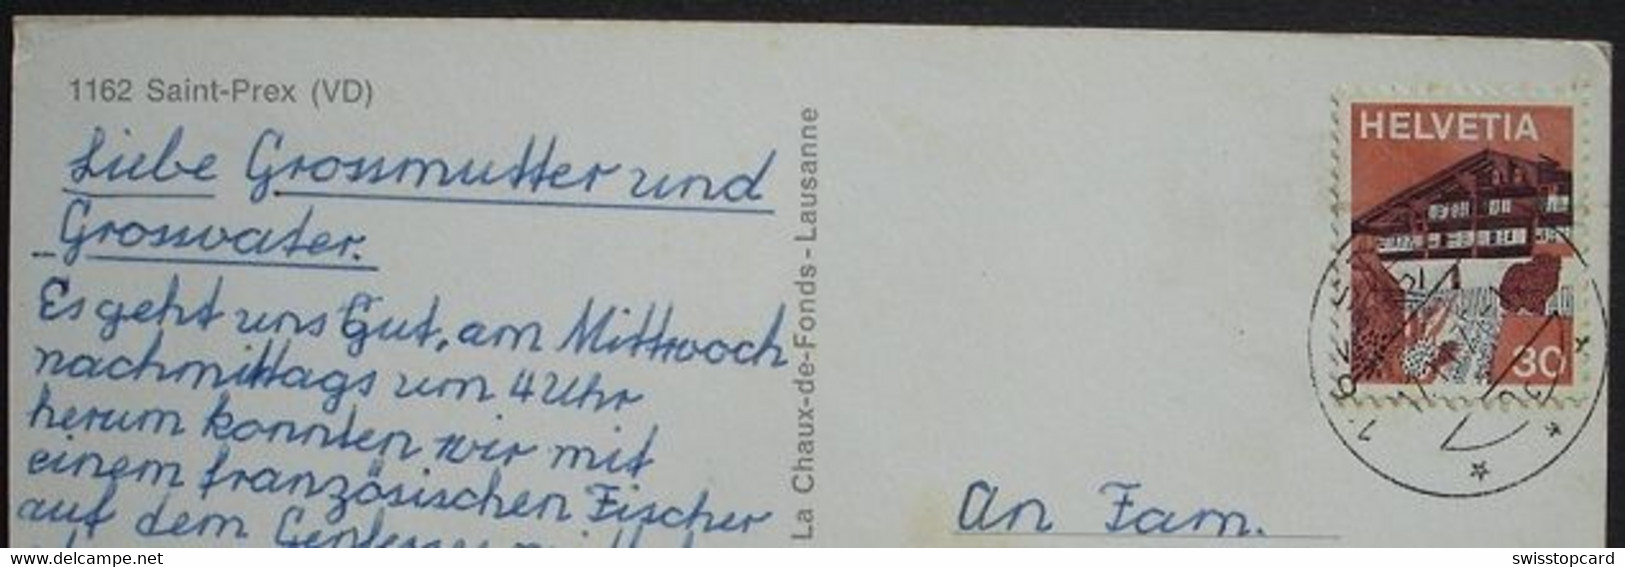 1162 Saint-Prex (VD)
Liebe Grossmutter und
Grossvater.
Es geht uns Gut, am Mittwoch
nachmittags um 4 Uhr
herum konnten wir mit
einem französischen Fischer
auf dem Genfersee
La Chaux-de-Fonds - Lausanne
HELVETIA
30
An Fam.
https://www.delcampe.net
swisstopcard